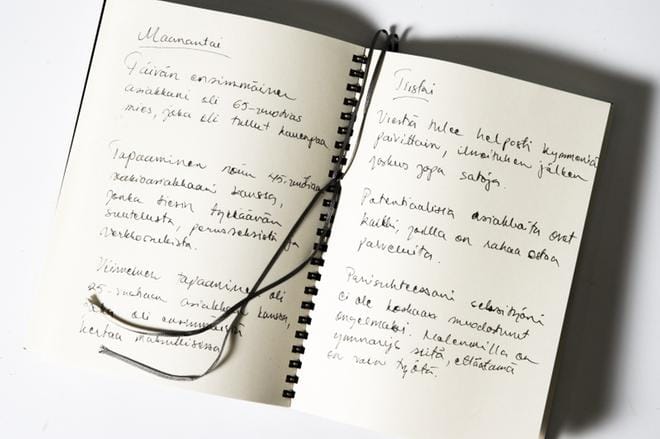 Maanantai
Päivän ensimmäinen
asiakkaani oli 65-vuotias
mies, joka oli tullut kauempaa
Tapaaminen noin 45-vuotiaan
vakioasiakkaani kanssa,
jonka tiesin tykkäävän
suutelusta, perusseksistä ja
verkkosukista.
Viimeinen tapaaminen oli
25-vuotiaan asiakkaan kanssa,
joka oli ensimmäistä
kertaa maksullisissa
Tiistai
Viestejä tulee helposti kymmeniä
päivittäin, ilmoituksen jälkeen
joskus jopa satoja.
Potentiaalisia asiakkaita ovat
kaikki, joilla on rahaa ostaa
palveluita.
Parisuhteessani seksityöni
ei ole koskaan muodostunut
ongelmaksi. Molemmilla on
ymmärrys siitä, että tämä
on vain työtä.